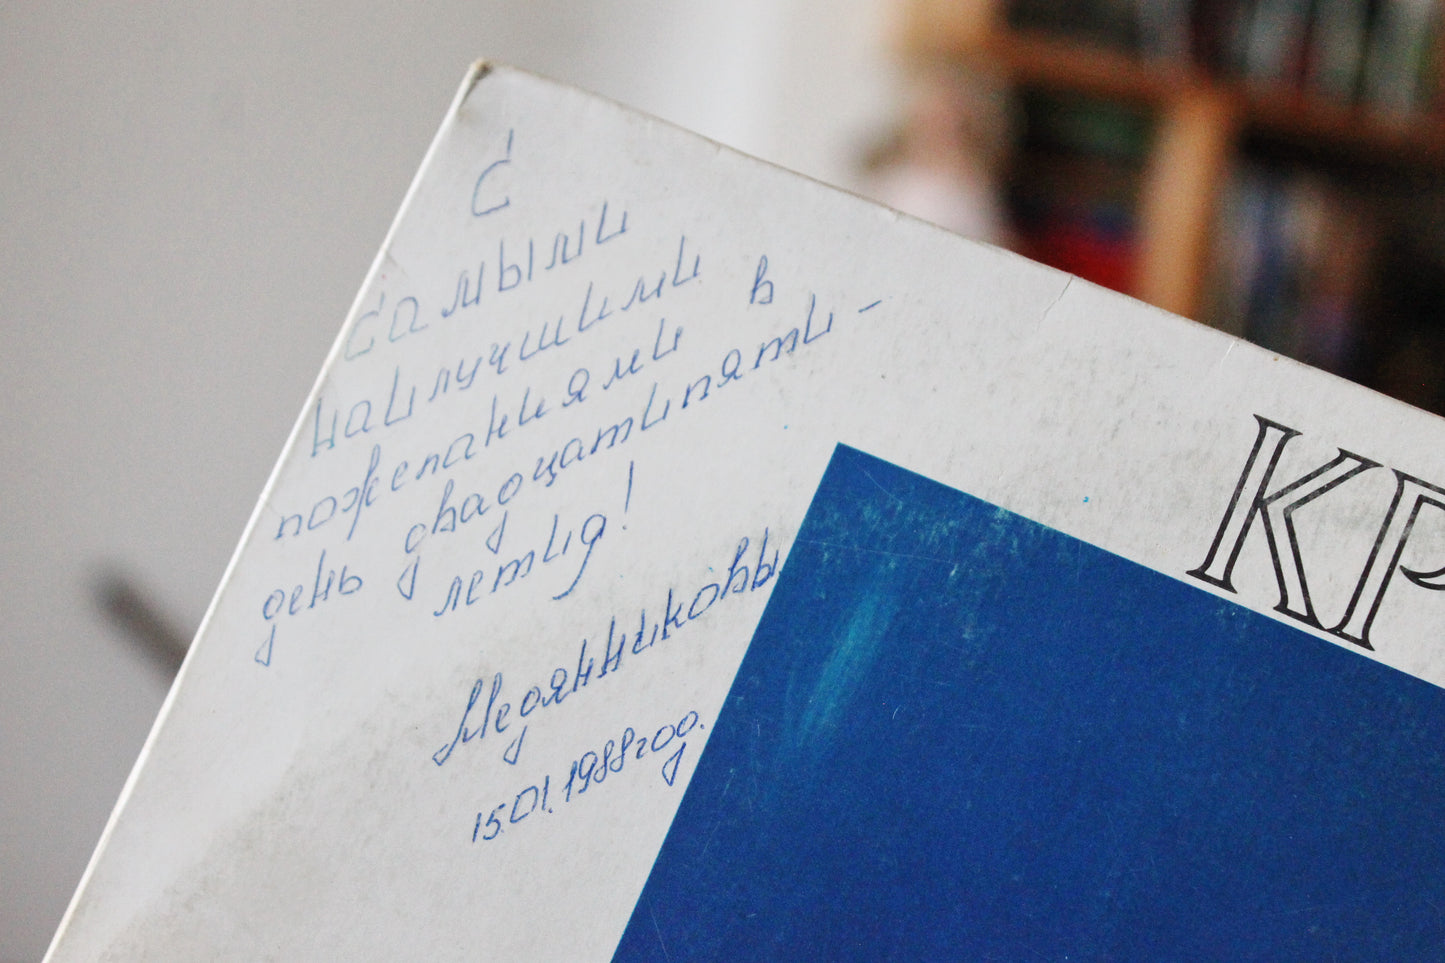 С
самыми
наилучшими
пожеланиями в
день двадцатипяти-
летия!
Медянниковы
15.01.1988 год.
КР